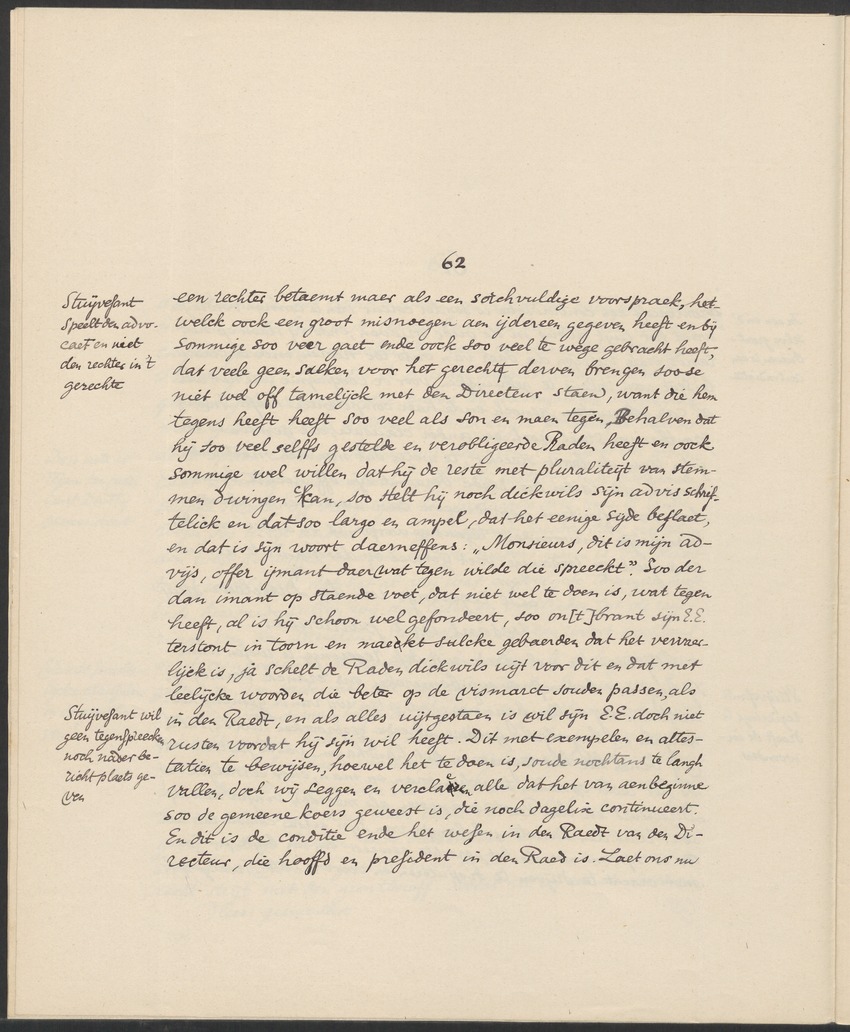 62
Stuÿvesant
speelt den advo-
caet en niet
den rechter in 't
gerechte
een rechter betaemt maer als een sorchvuldige voorspraek, het-
welck oock een groot misnoegen aen ijdereen gegeven heeft en bij
sommige soo veer gaet ende oock soo veel te wege gebracht heeft,
dat veele geen saeken voor het gerechte derven brengen soo se
niet wel off tamelijck met den Directeur staen, want die hem
tegens heeft heeft soo veel als son en maen tegen. Behalven dat
hij soo veel selffs gestelde en verobligeerde Raden heeft en oock
sommige wel willen dat hij de reste met pluraliteijt van stem-
men dwingen kan, soo stelt hij noch dickwils sijn advis schrif-
telick en dat soo largo en ampel, dat het eenige sijde beslaet,
en dat is sijn woort daerneffens: „Monsieurs, dit is mijn ad-
vijs, offer ijmant daer wat tegen wilde die spreeckt”. Soo der
dan imant op staende voet, dat niet wel te doen is, wat tegen
heeft, al is hij schoon wel gefondeert, soo on[t]brant sijn E.E.
terstont in toorn en maeckt sulcke gebaerden dat het vervaer-
lijck is, ja schelt de Raden dickwils uijt voor dit en dat met
leelijcke woorden die beter op de vismarct souden passen, als
in den Raedt, en als alles uijtgestaen is wil sijn E.E. doch niet
rusten voordat hij sijn wil heeft. Dit met exempelen en attes-
tatien te bewijsen, hoewel het te doen is, soude nochtans te langh
vallen, doch wij seggen en verclaren alle dat het van aenbeginne
soo de gemeene koers geweest is, die noch dagelix continueert.
En dit is de conditie ende het wesen in den Raedt van den Di-
recteur, die hooffd en president in den Raed is. Laet ons nu
Stuijvesant wil
geen tegenspreecken
noch nader be-
richt plaets ge-
ven